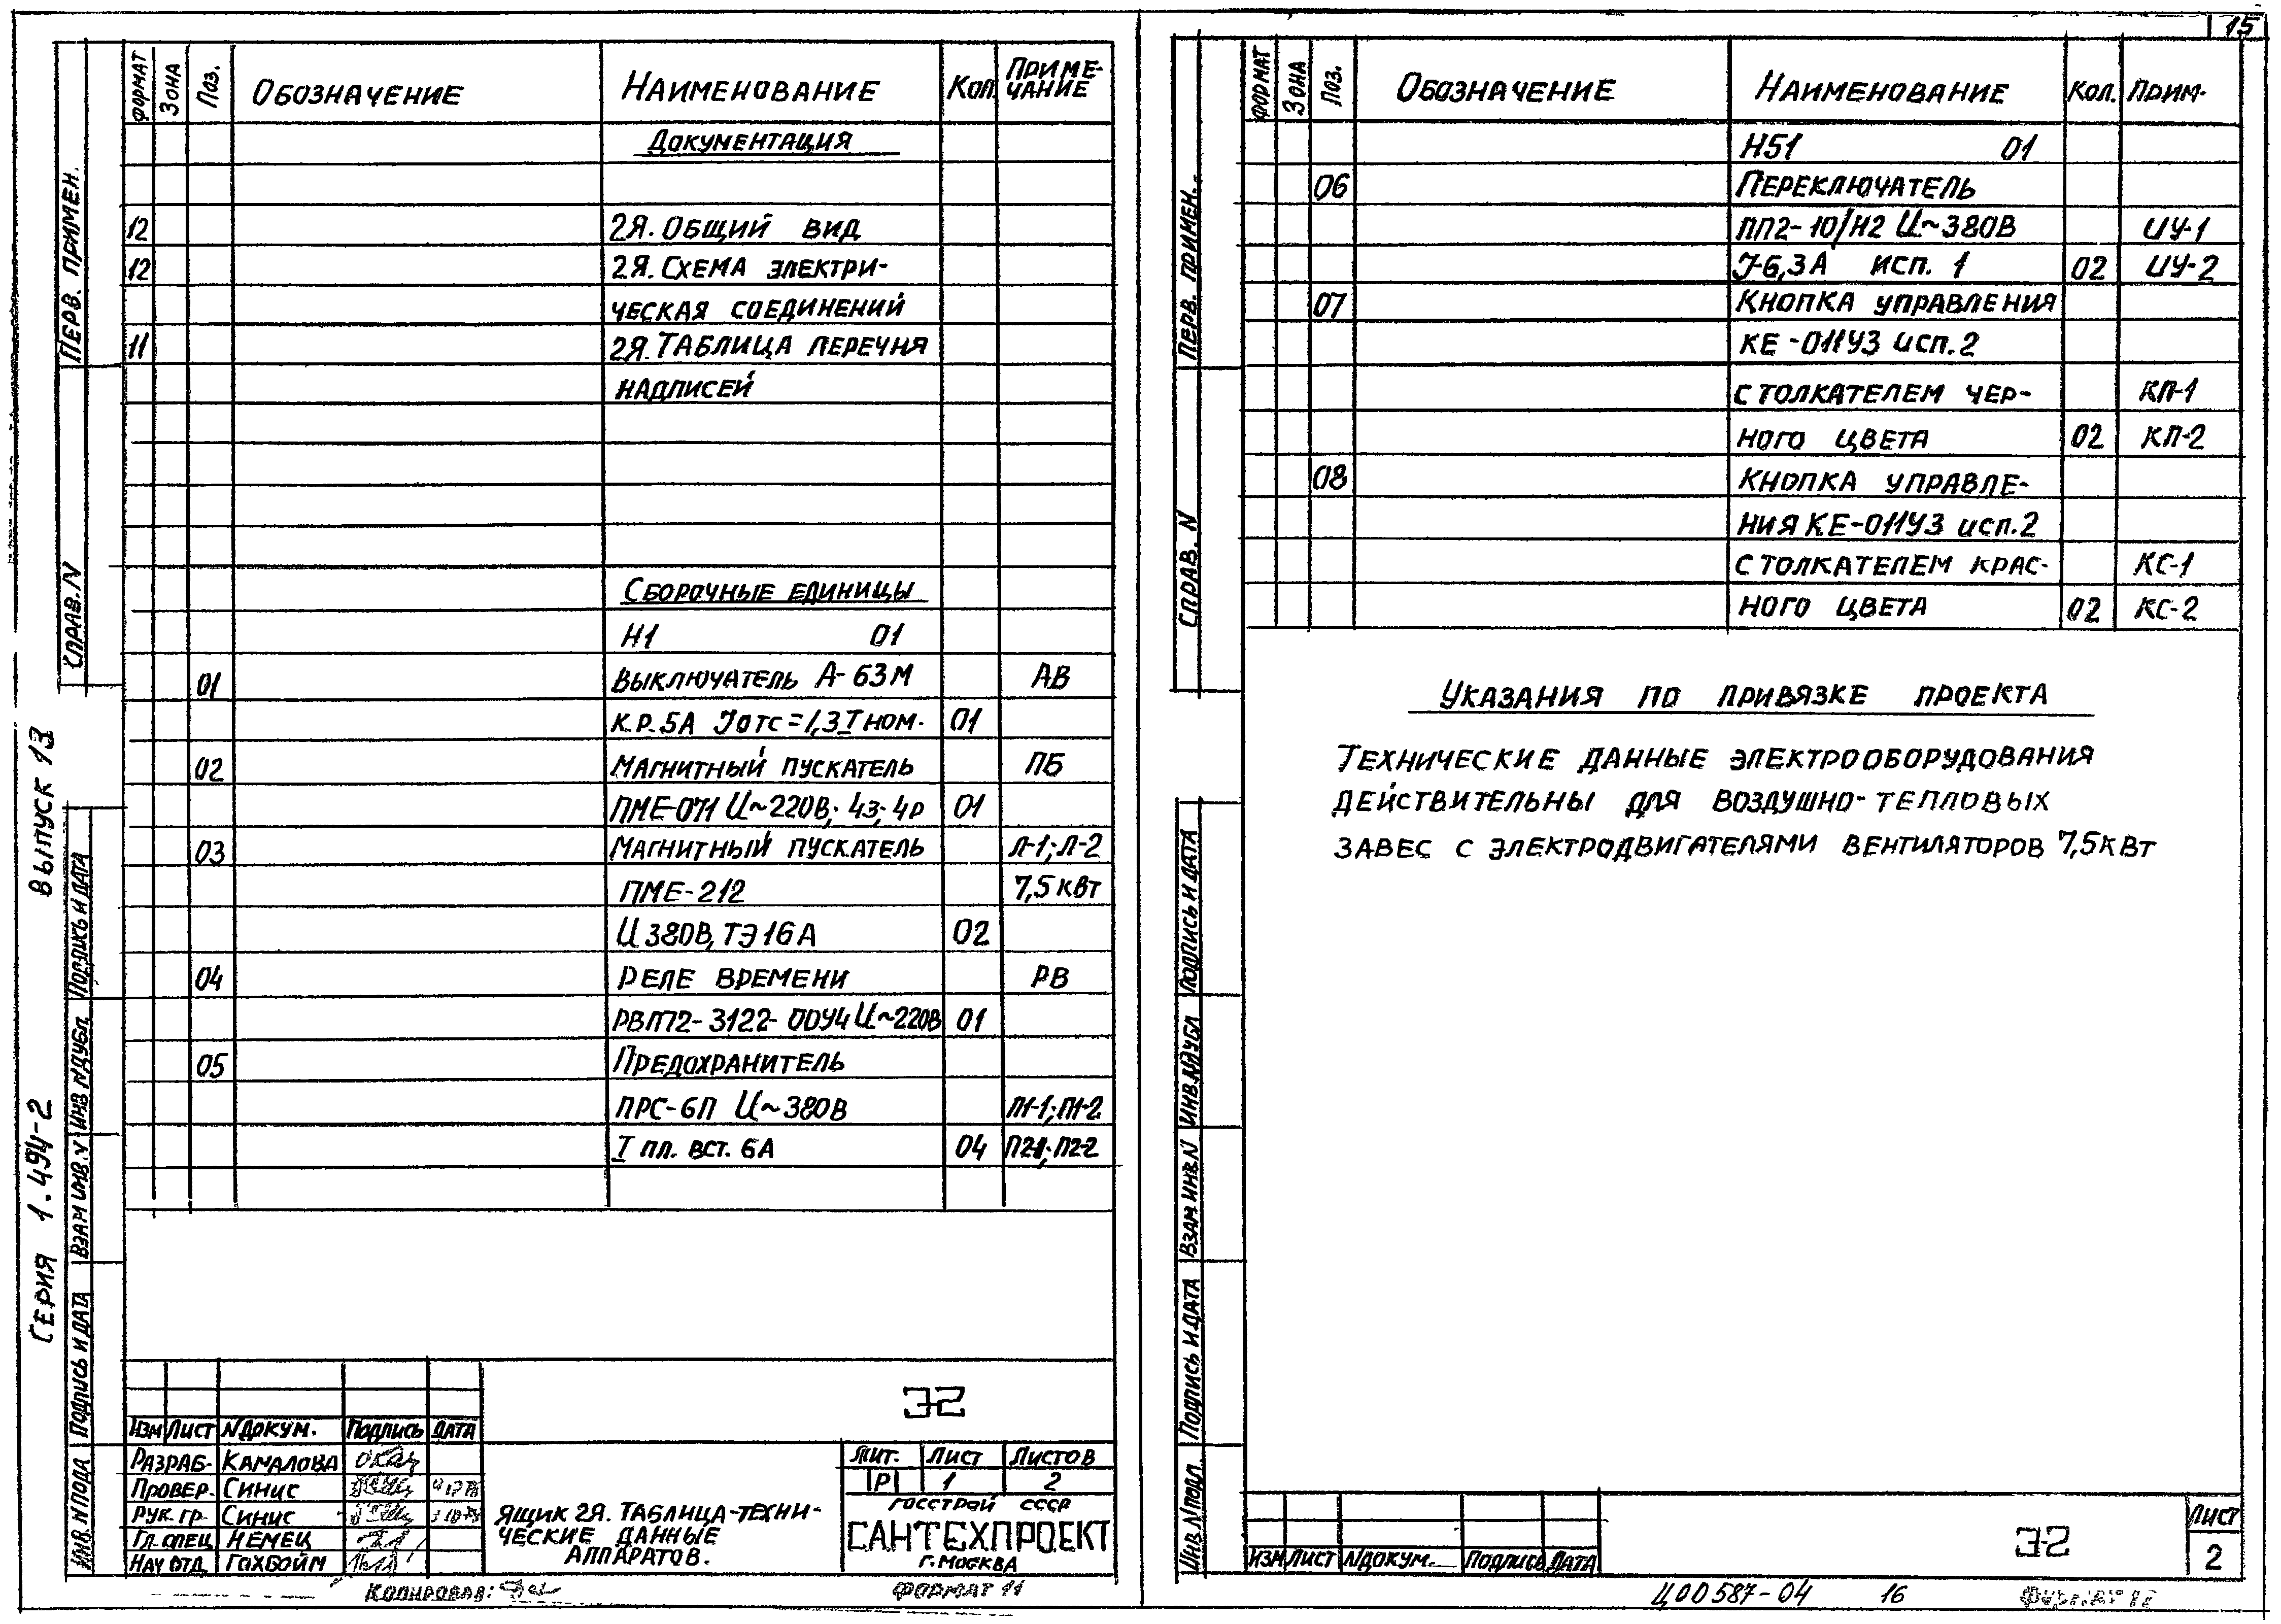 15
Серия 1.494-2 Выпуск 13
Перв. примен.
Справ. N
Подпись и дата
Инв. N дубл.
Взам инв. N
Подпись и дата
Инв. N подл
Формат Зона Поз. Обозначение Наименование Кол. Приме-
чание
Документация
12 2Я. Общий вид
12 2Я. Схема электри-
ческая соединений
11 2Я. Таблица перечня
надписей
Сборочные единицы
Н1 01
01 Выключатель А-63М АВ
к.р. 5А Jотс=1,3 Iном. 01
02 Магнитный пускатель ПБ
ПМЕ-071 U~220В; 4з; 4р 01
03 Магнитный пускатель Л-1; Л-2
ПМЕ-212 7,5 кВт
U 380В, ТЭ 16А 02
04 Реле времени РВ
РВП72-3122-00У4 U~220В 01
05 Предохранитель
ПРС-6П U~380В П1-1; П1-2
I пл. вст. 6А 04 П2-1; П2-2
Э2
Изм Лист N докум. Подпись Дата
Разраб. Камалова
Провер. Синис
Рук. гр. Синис
Гл. спец Немец
Нач отд. Гохбойм
Ящик 2Я. Таблица-техни-
ческие данные
аппаратов.
Лит. Лист Листов
Р 1 2
Госстрой СССР
САНТЕХПРОЕКТ
г. Москва
Копировал:
Формат 11
Перв. примен.
Справ. N
Подпись и дата
Инв. N дубл
Взам инв. N
Подпись и дата
Инв. N подл.
Формат Зона Поз. Обозначение Наименование Кол. Прим.
Н51 01
06 Переключатель
ПП2-10/Н2 U~380В ИУ-1
J-6,3А исп. 1 02 ИУ-2
07 Кнопка управления
КЕ-011У3 исп. 2
с толкателем чер- КП-1
ного цвета 02 КП-2
08 Кнопка управле-
ния КЕ-011У3 исп. 2
с толкателем крас- КС-1
ного цвета 02 КС-2
Указания по привязке проекта
Технические данные электрооборудования
действительны для воздушно-тепловых
завес с электродвигателями вентиляторов 7,5 кВт
Изм Лист N докум. Подпись Дата
Э2
Лист
2
Ц00587-04 16